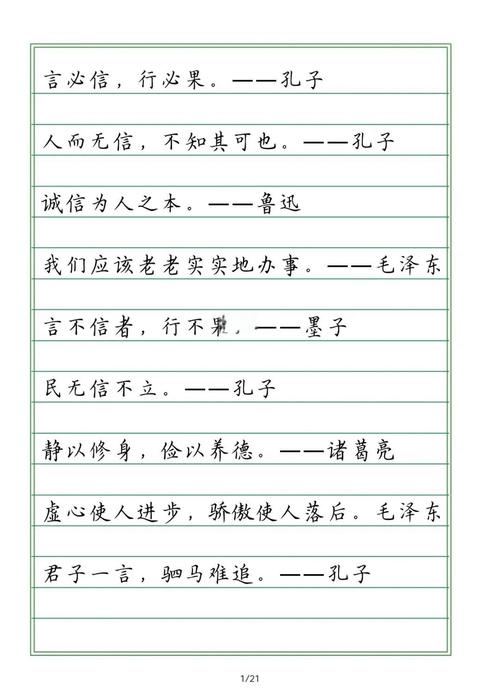 言必信，行必果。——孔子
人而无信，不知其可也。——孔子
诚信为人之本。——鲁迅
我们应该老老实实地办事。——毛泽东
言不信者，行不果。——墨子
民无信不立。——孔子
静以修身，俭以养德。——诸葛亮
虚心使人进步，骄傲使人落后。毛泽东
君子一言，驷马难追。——孔子
1/21